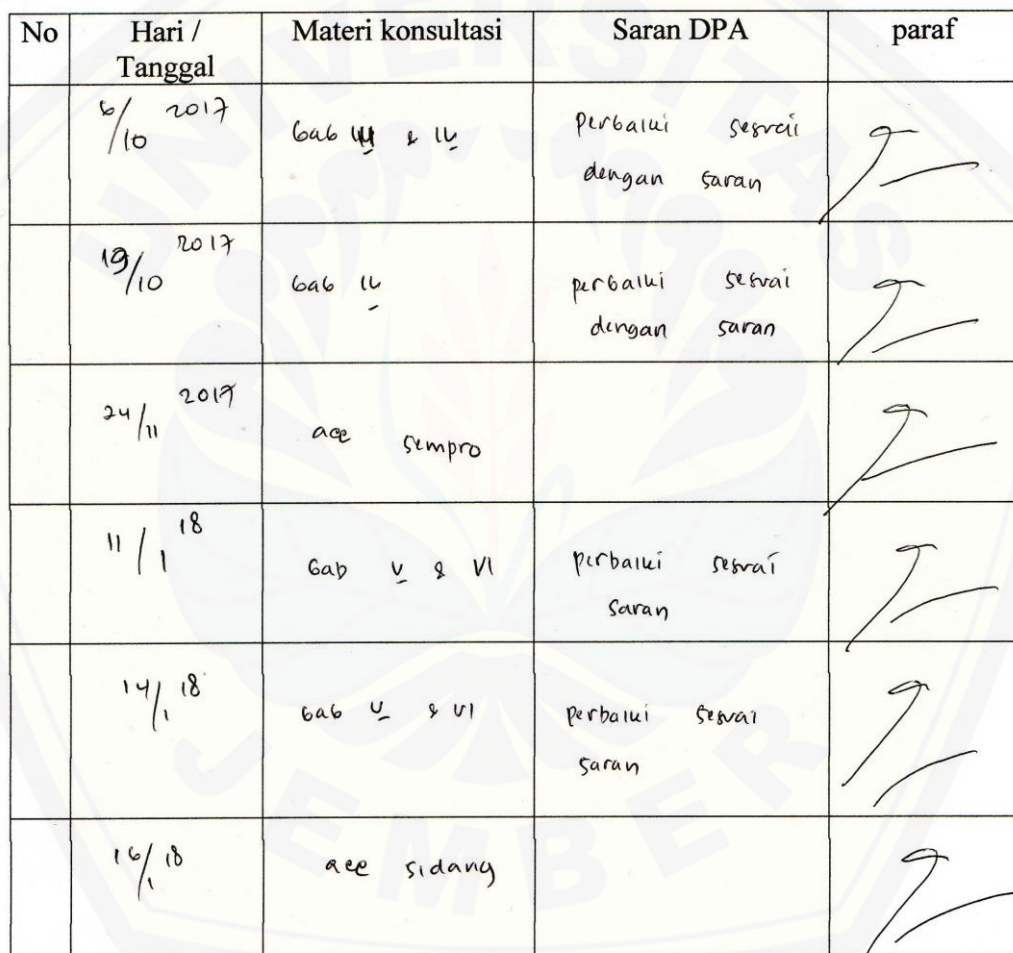 No Hari / Materi konsultasi Saran DPA paraf
Tanggal
6/10 2017 bab III & IV perbaiki sesuai
dengan saran
19/10 2017 bab IV perbaiki sesuai
dengan saran
24/11 2017 acc sempro
11/1 18 bab V & VI perbaiki sesuai
saran
14/1 18 bab V & VI perbaiki sesuai
saran
16/1 18 acc sidang
UNIVERSITAS
JEMBER